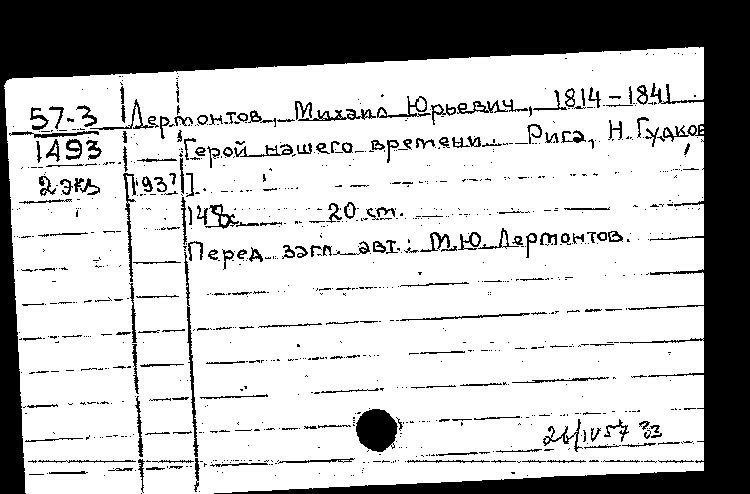 57-3 Лермонтов, Михаил Юрьевич, 1814-1841
1493 Герой нашего времени. Рига, Н. Гудков,
2 экз [193?].
148с. 20 cm.
Перед загл. авт.: М.Ю. Лермонтов.
26/IV 57 ЗЗ